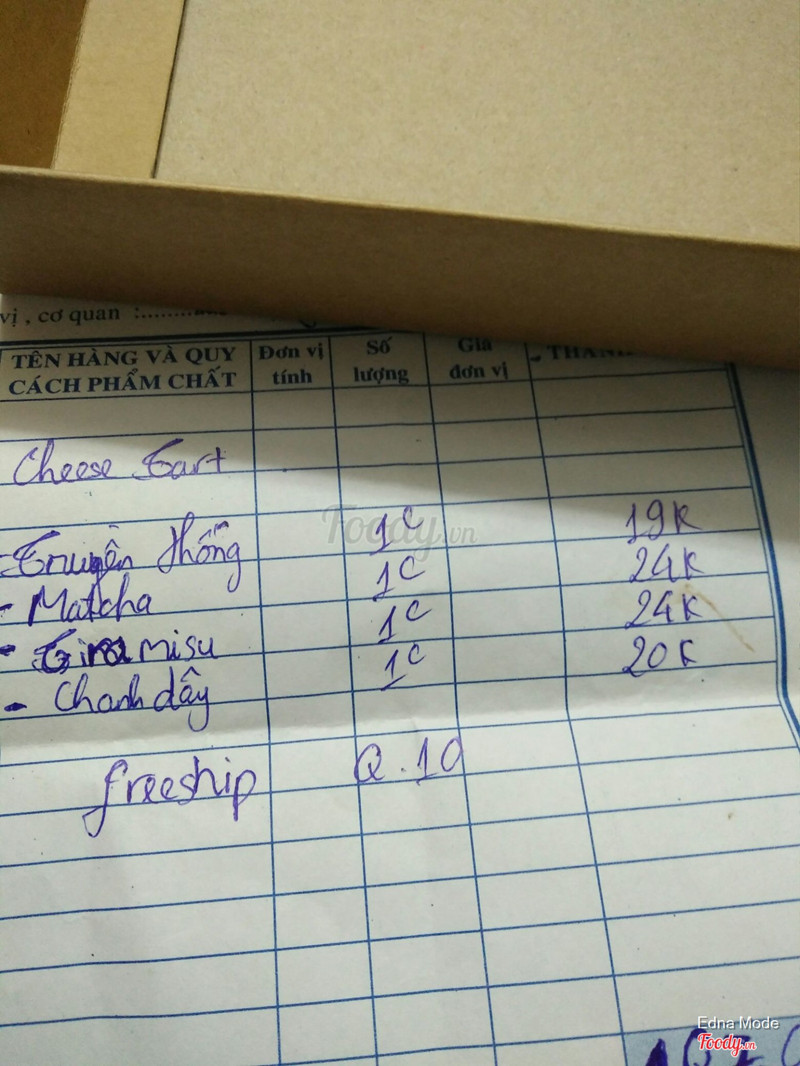 vị , cơ quan :
TÊN HÀNG VÀ QUY CÁCH PHẨM CHẤT
Đơn vị tính
Số lượng
Giá đơn vị
THÀNH
Cheese Tart
- Truyền thống 1C 19K
- Matcha 1C 24K
- Tiramisu 1C 24K
- Chanh dây 1C 20K
freeship Q.10
Foody.vn
Edna Mode
Foody.vn